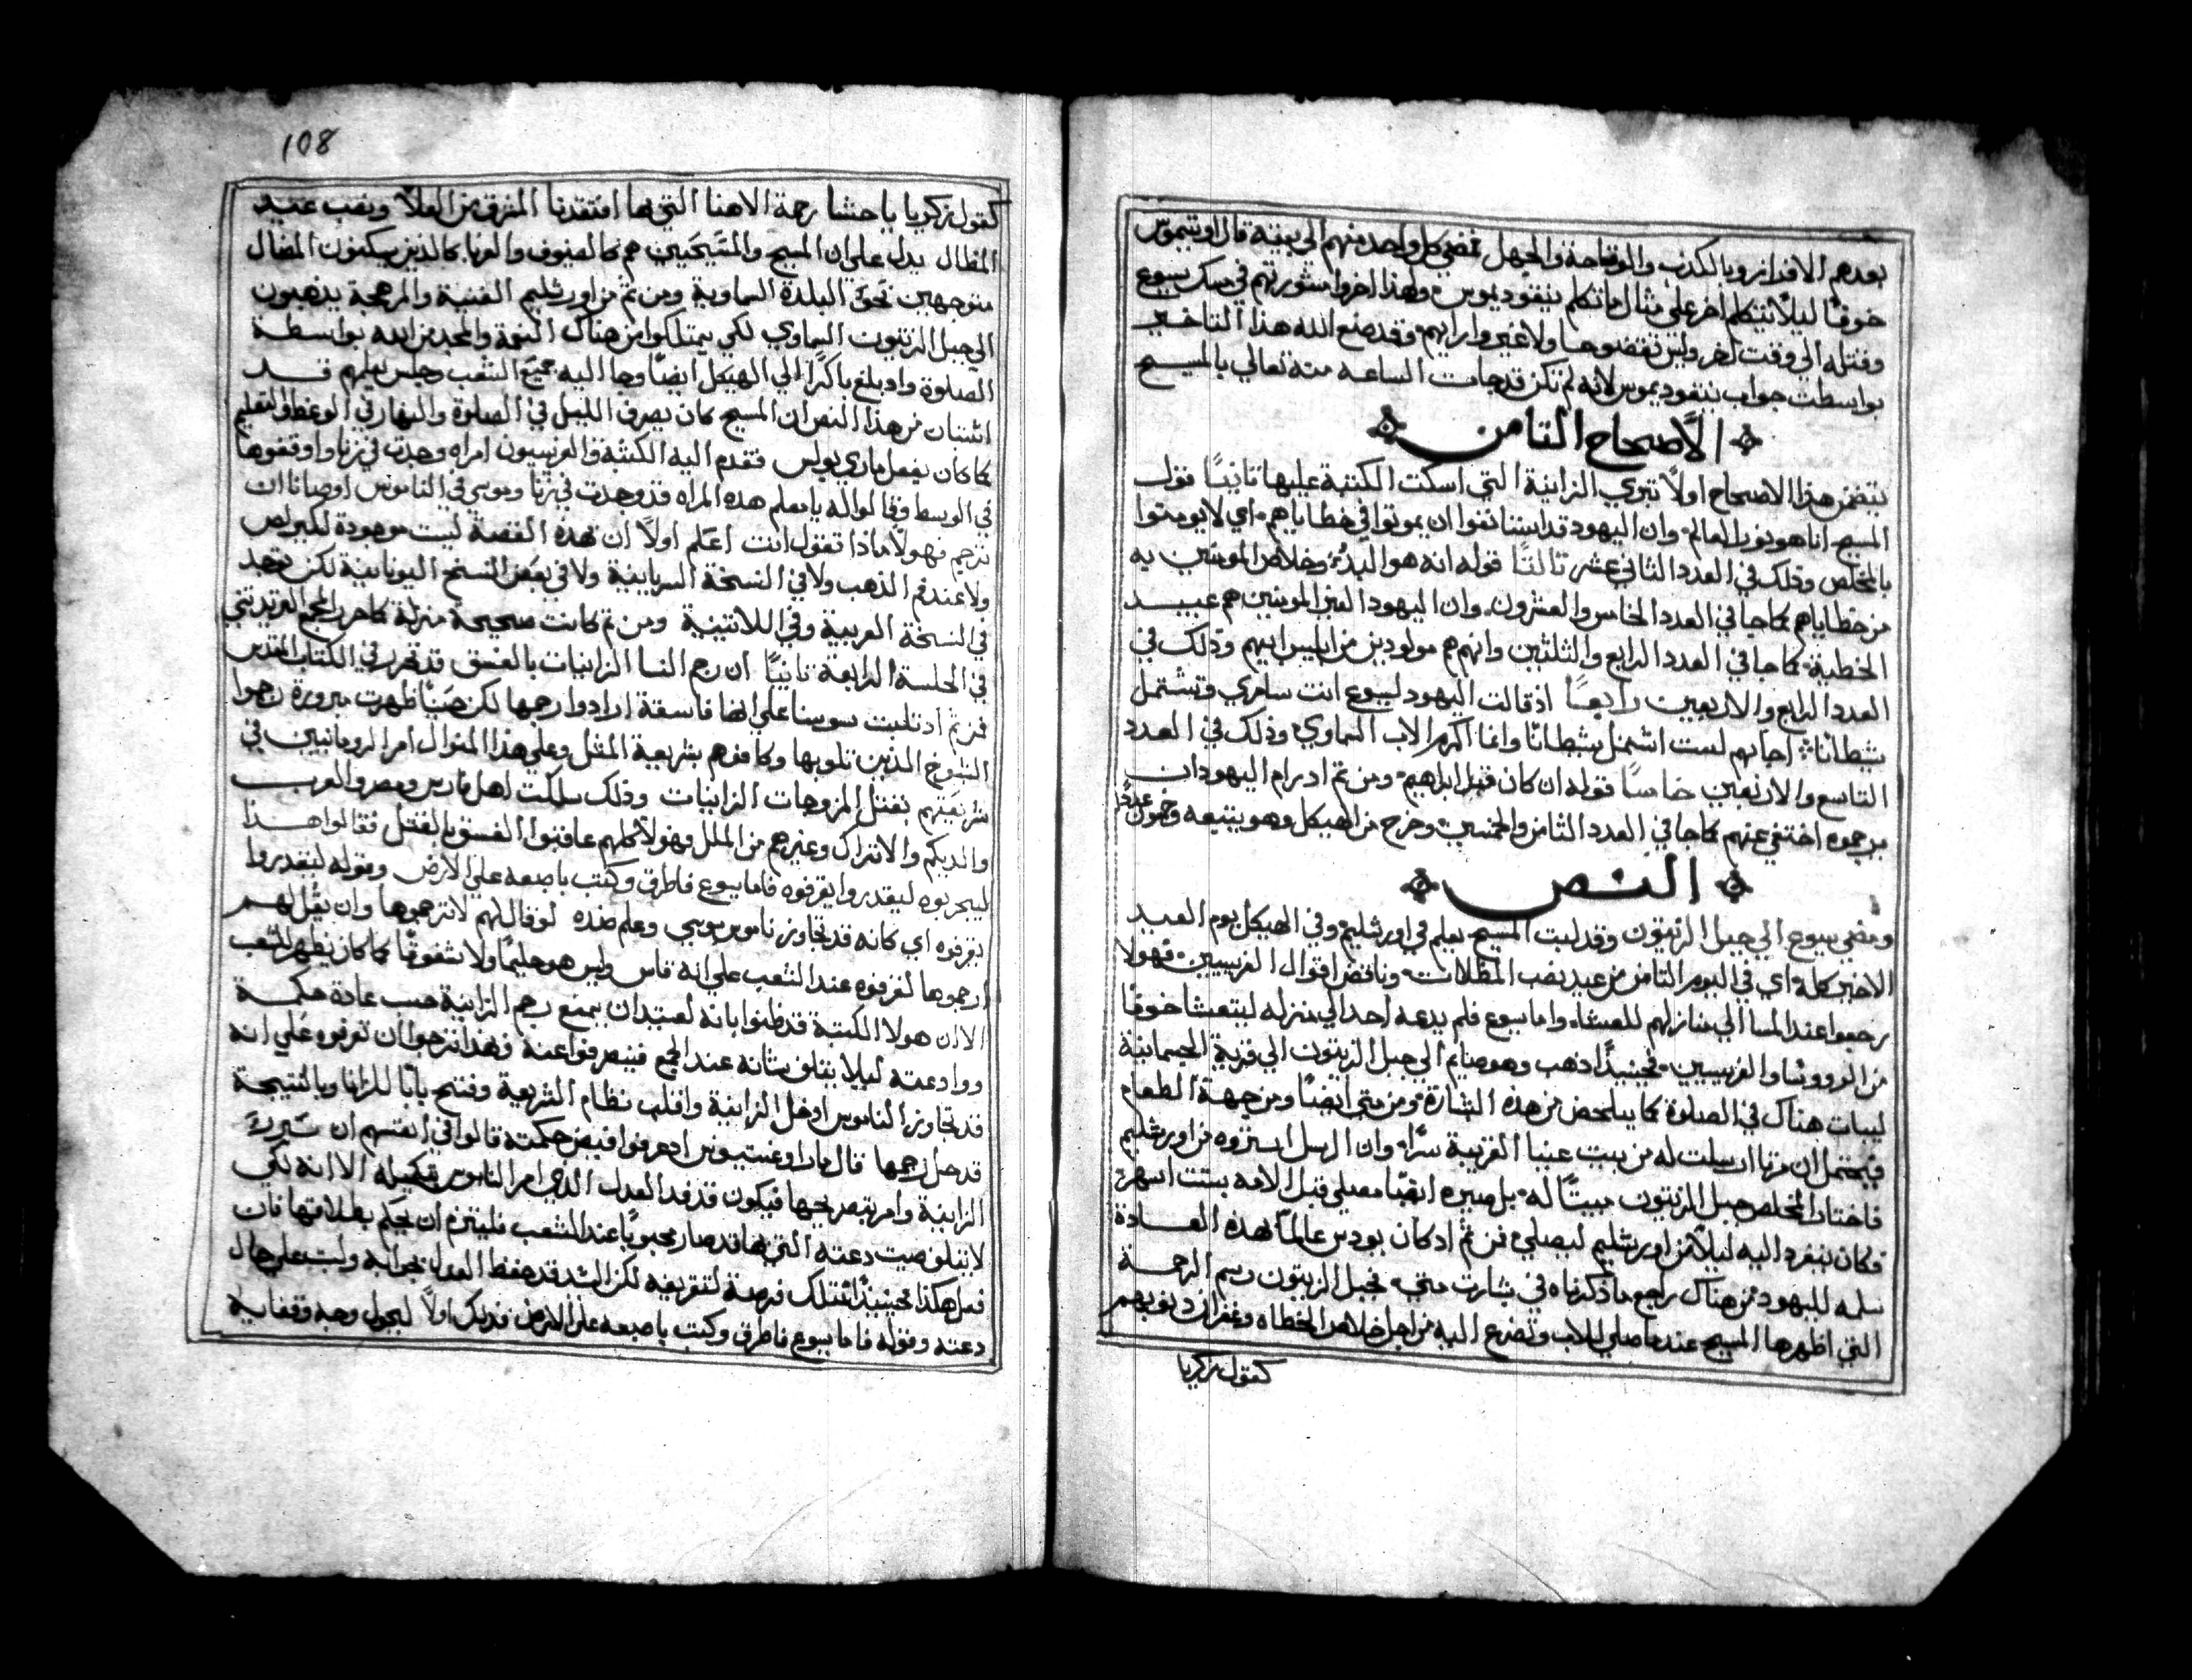 بعدهم الافرازو بالكذب والوقاحة والجهل فمضي كل واحد منهم الي بيته قال اوتيموس
خوفًا ليلًا يتكلم اخر علي مثال ما تكلم نيقوديموس ولهذا اخروا مشورتهم في مسك يسوع
وقتله الي وقت اخر وليس نقضوها ولا غيروا رايهم وقد صنع الله هذا التاخير
بواسطت جواب نيقوديموس لانه لم تكن قد جات الساعه منه تعالي بالمسيح
الأصحاح الثامن
يتضمن هذا الاصحاح اولًا تبري الزانية التي اسكت الكتبة عليها ثانيًا قول
المسيح انا هو نور العالم وان اليهود قد استانفوا ان يموتوا في خطاياهم اي لا يومنوا
بالمخلص وذلك في العدد الثاني عشر ثالثًا قوله انه هو البدُء وخلاص المومنين به
من خطاياهم كما جا في العدد الخامس والعشرون وان اليهود الغير المومنين هم عبيد
الخطية كما جا في العدد الرابع والثلثين وانهم هم مولودين من ابليس ابيهم وذلك في
العدد الرابع والاربعين رابعًا اذ قالت اليهود ليسوع انت سامري وتشتمل
شيطانًا اجابهم لست اشتمل شيطانًا وانما اكرم الاب السماوي وذلك في العدد
التاسع والاربعين خامسًا قوله ان كان قبل ابراهيم ومن ثم اذ رام اليهود ان
يرجموه اختفي عنهم كما جا في العدد الثامن والخمسين وخرج من الهيكل وهو يتبعه وخمول عددًا
النص
ومضي يسوع الي جبل الزيتون وقد لبث المسيح يعلم في اورشليم وفي الهيكل يوم العيد
الاخير كله اي في اليوم الثامن من عيد نصب المظلات وناقض اقوال الفريسيين فهولا
رجعوا عند المسا الي منازلهم للعشاء واما يسوع فلم يدعه احد الي منزله ليتعشا خوفًا
من الرووسا والفريسيين فحينيذٍ اذهب وهو صايم الي جبل الزيتون الي قرية الجسمانية
ليبات هناك في الصلوة كما يتلخص من هذه البشارة ومن متي ايضًا ومن جهة الطعام
فيحتمل ان مرتا ارسلت له من بيت عنيا القريبة سرًا وان الرسل اشتروه من اورشليم
فاختار المخلص جبل الزيتون مبيتًا له بل صيره ايضًا مصلي قبل الامه بستت اشهر
فكان ينفرد اليه ليلًا من اورشليم ليصلي فمن ثم اذ كان يودس عالمًا بهذه العادة
سلمه لليهود من هناك راجع ما ذكرناه في بشارت متي فجبل الزيتون رسم الرحمة
التي اظهرها المسيح عندما صلي للاب وتضرع اليه من اجل خلاص الخطاه وغفران ذنوبهم
كقول زكريا
108
كقول زكريا باحشا رحمة الاهنا التي بها افتقدنا المشرق من العلاً ونصب عيد
المظال يدل علي ان المسيح والمسَيحَيين هم كالضيوف والغربا كالذين يسكنون المضال
متوجهين نحو البلدة السماوية ومن ثم من اورشليم الغنية والمبهجة يذهبون
الي جبل الزيتون السماوي لكي يمتلكوا من هناك النعمة والمجد من الله بواسطة
الصلوة واذ بلغ باكرًا الي الهيكل ايضًا وجا اليه جميع الشعب وجلس يعلمهم قد
اتسبان من هذا النص ان المسيح كان يصرف الليل في الصلوة والنهار في الوعظ والتعليم
كما كان يفعل ماري بولس فقدم اليه الكتبة والفريسيون امراه وجدت في زنا واوقفوها
في الوسط وقالوا له يا معلم هذه المراه قد وجدت في زنا وموسي في الناموس اوصانا ان
نرجم فهولًا ماذا تقول انت اعلم اولًا ان هذه القصة ليست موجودة لكيرلص
ولا عند فم الذهب ولا في النسخة السريانية ولا في بعض النسخ اليونانية لكن توجد
في النسخة العربية وفي اللاتنينية ومن ثم كانت صحيحة منزلة كما حرر المجمع التريدنتيني
في الجلسة الرابعة ثانيًا ان رجم النسا الزانيات بالفسق قد تقرر في الكتاب المقدس
فمن ثم اذ ثلبت سوسنا علي انها فاسقة ارادوا رجمها لكن حَيثُ ظهرت مبرورة رجموا
الشيوخ الذين ثلبوها وكافوهم بشريعية المثل وعلي هذا المنوال امر الرومانيين في
شريعَتهم بقتل المزوجات الزانيات وذلك سلكت اهل فارس ومصر والعرب
والديكم والاتراك وغيرهم من الملل وهولًا كلهم عاقبوا الفسق بالقتل فقالوا هذا
ليجربوه ليقدروا يقرفوه فاما يسوع فاطرق وكتب باصبعه علي الارض وقوله ليقدروا
يقرفوه اي كانه قد تجاوز ناموس موسي وعلم ضده لو قال لهم لا ترجموها وان يقُل لهم
ارجموها لقرفوه عند الشعب علي انه قاس وليس هو حليمًا ولا شفوقًا كما كان يظهر للشعب
الا ان هولا الكتبة قد ظنوا بانه لعتيد ان يمنع رجم الزانية حسب عادة حكمة
ووادعته ليلا يتلف شانه عند الجمع فينصرفوا عنه فهذا ترجوا ان يقرفوه علي انه
قد تجاوز الناموس اذ خل الزانية واقلب نظام الشريعية وفتح بابًا للزنا وبالنتيجة
قد حل رجمها قال مار اوغستينوس اذ عرفوا فيض حكمته قالوا في انفسهم ان سَيّردَ
الزانية وامر بتصريحها فيكون قد فقد العدل الذي امر الناموس بتكميله الا انه لكي
لا يتلف صيت دعته التي بها قد صار محبوبًا عند الشعب فيلتزم ان يحكم بطلاقتها فان
فعل هكذا فحينيذٍ نمتلك فرصة لتقريفه لكن السيد قد حفظ العدل بجوابه ولبث علي حال
دعته وقوله فاما يسوع فاطرق وكتب باصبعه علي الارض فذلك اولًا ليحول وجه وقفايه